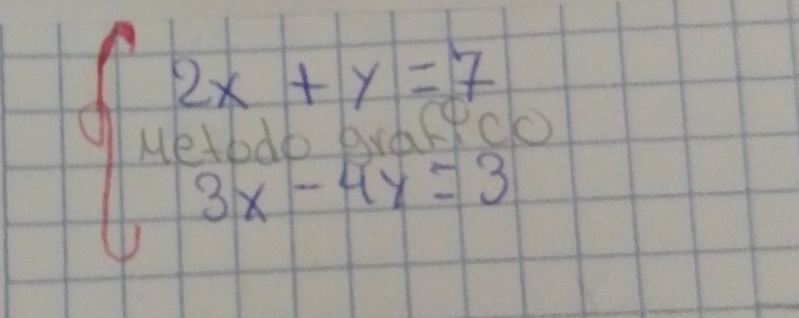 2x + y = 7
Metodo grafico
3x - 4y = 3